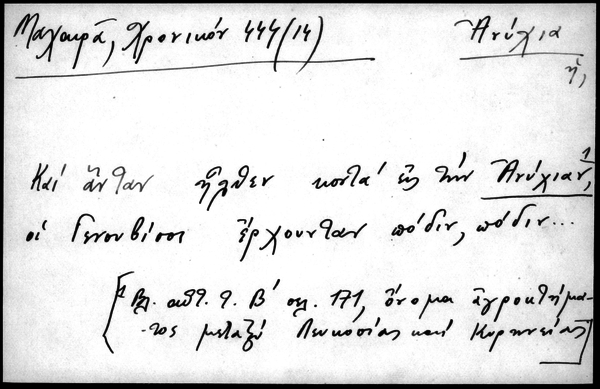 Μαχαιρᾶ, Χρονικόν 444 (14) Ἀνύχια
ἡ,
Καὶ ἄνταν ἦλθεν κοντὰ εἰς τὴν Ἀνύχιαν,¹
οἱ Γενουβίσοι ἔρχουνταν πόδιν, πόδιν...
[1 Βλ. αὐτ. τ. Β' σελ. 171, ὄνομα ἀγροκτήμα-
-τος μεταξὺ Λευκοσίας καὶ Κυρηνείας]